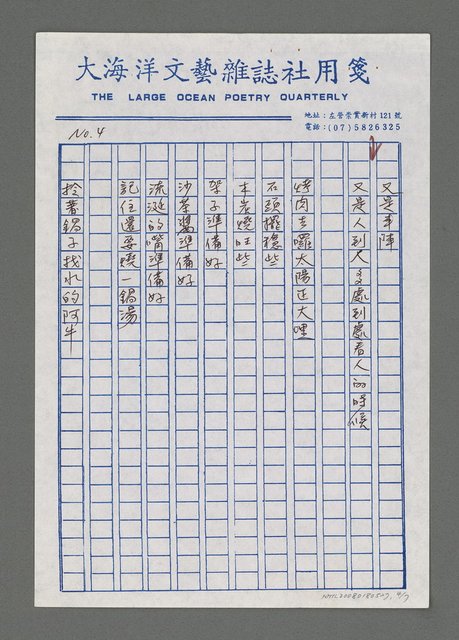 大海洋文藝雜誌社用箋
THE LARGE OCEAN POETRY QUARTERLY
地址：左營崇實新村121號
電話：(07)5826325
No.4
又是車陣
又是人到人多處到處看人的時候
烤肉去囉太陽正大哩
石頭擺穩些
木炭燒旺些
架子準備好
沙茶醬準備好
流涎的嘴準備好
記住還要燒一鍋湯
拎著鍋子找水的阿牛